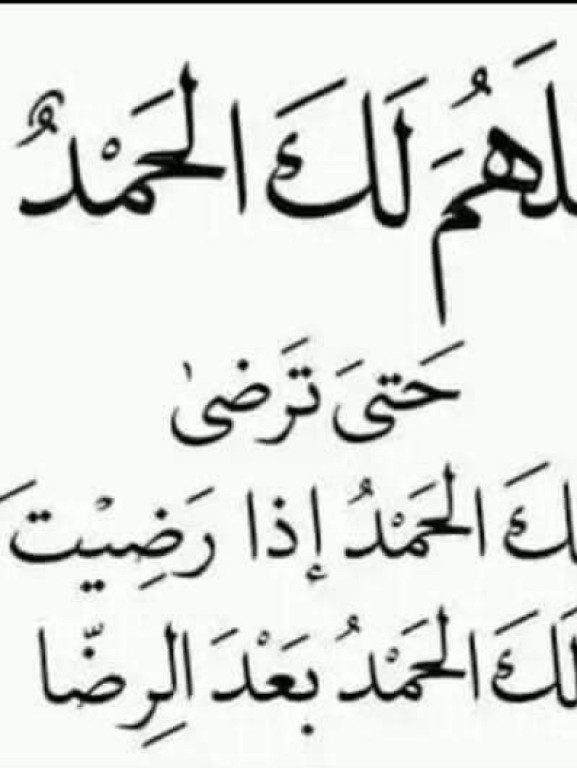 لَهُمَ لَكَ الحَمْدُ
حَتىَ تَرَضىٰ
لَكَ الحَمْدُ إذا رَضِيْتَ
لَكَ الحَمْدُ بَعْدَ الرِضّا